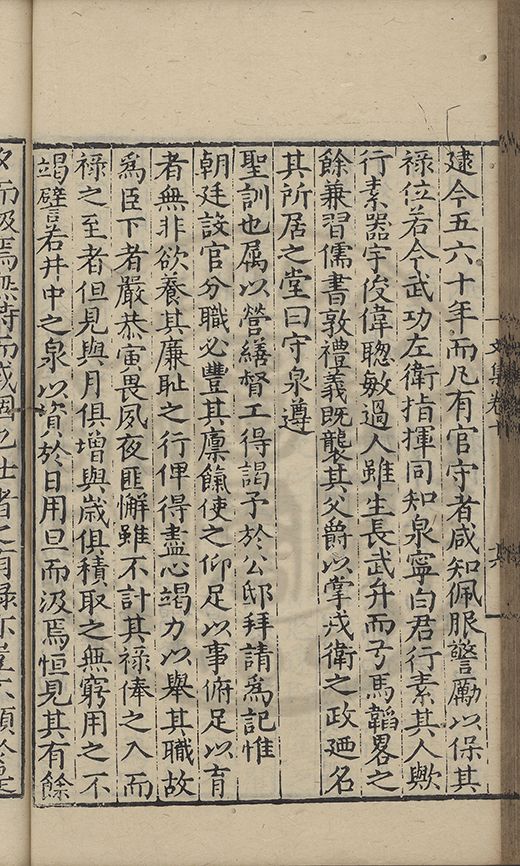 逮今五六十年而凡有官守者咸知佩服警勵以保其
祿位若今武功左衛指揮同知泉寧白君行素其人歟
行素器宇俊偉聰敏過人雖生長武弁而弓馬韜畧之
餘兼習儒書敦禮義既襲其父爵以掌戎衛之政廼名
其所居之堂曰守泉遵
聖訓也属以營繕督工得謁予於公邸拜請爲記惟
朝廷設官分職必豐其廪餼使之仰足以事俯足以育
者無非欲養其廉耻之行俾得盡心竭力以舉其職故
爲臣下者嚴恭寅畏夙夜匪懈雖不計其祿俸之入而
祿之至者但見與月俱增與歳俱積取之無窮用之不
竭譬若井中之泉以資於日用旦而汲焉恒見其有餘
夕而汲焉